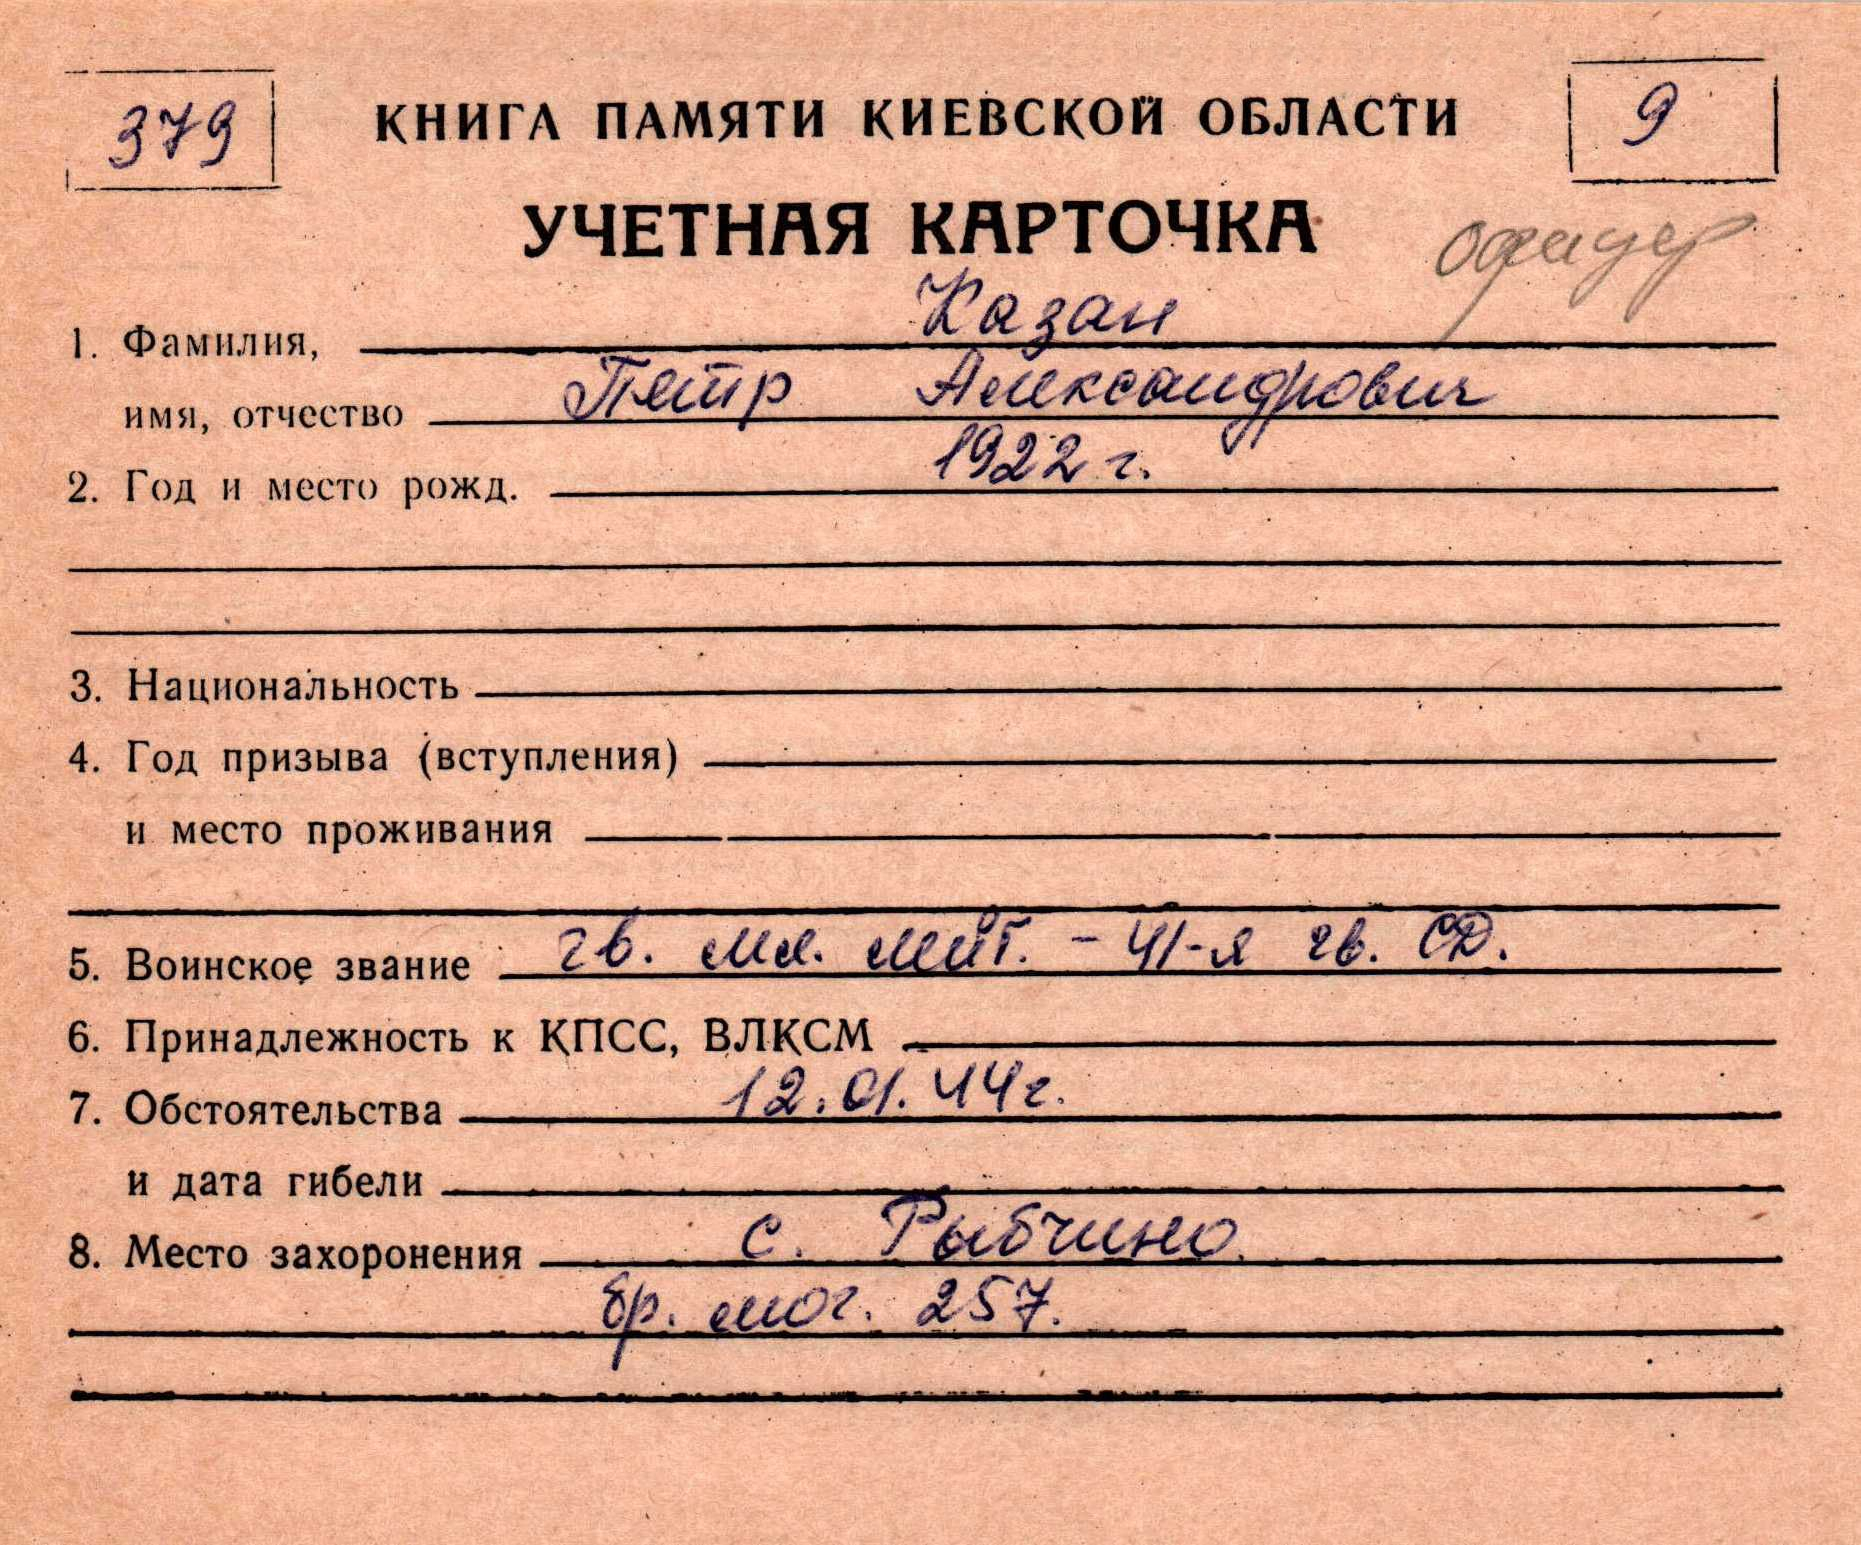 379
КНИГА ПАМЯТИ КИЕВСКОЙ ОБЛАСТИ
9
УЧЕТНАЯ КАРТОЧКА
офицер
1. Фамилия, Казан
имя, отчество Петр Александрович
2. Год и место рожд. 1922 г.
3. Национальность
4. Год призыва (вступления)
и место проживания
5. Воинское звание гв. мл. лейт. - 41-я гв. СД.
6. Принадлежность к КПСС, ВЛКСМ
7. Обстоятельства 12.01.44г.
и дата гибели
8. Место захоронения с. Рыбчино
бр. мог. 257.